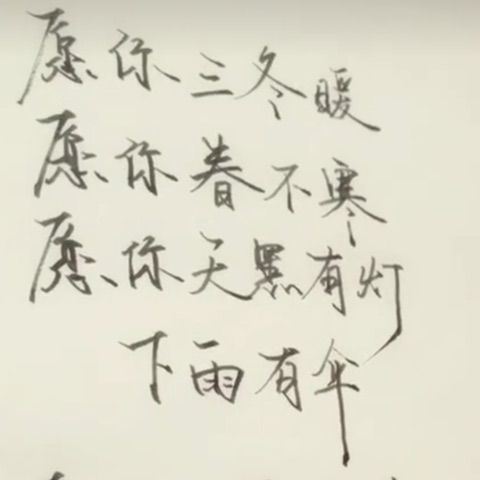 愿你三冬暖
愿你春不寒
愿你天黑有灯
下雨有伞